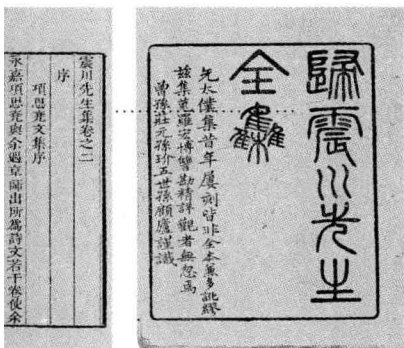 歸震川先生
全集
先太僕集昔年屢刻皆非全本兼多訛繆
茲集蒐羅宏博讐勘精詳觀者無忽焉
曾孫莊元孫玠五世孫顧廬謹識
震川先生集卷之二
序
項思堯文集序
永嘉項思堯與余遇京師出所為詩文若干卷使余